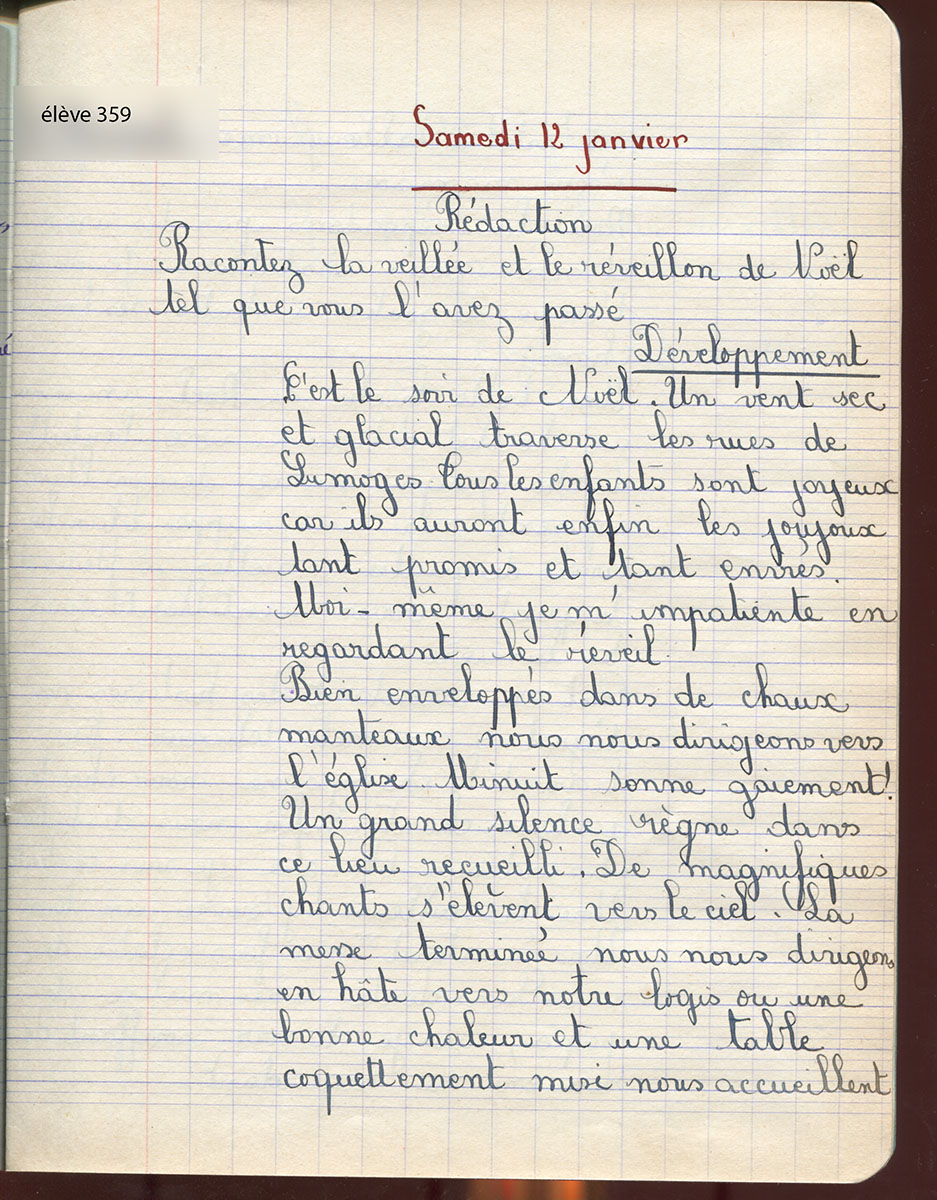 élève 359
Samedi 12 janvier
Rédaction
Racontez la veillée et le réveillon de Noël
tel que vous l'avez passé
Développement
C'est le soir de Noël. Un vent sec
et glacial traverse les rues de
Limoges. Tous les enfants sont joyeux
car ils auront enfin les joyjoux
tant promis et tant enviés.
Moi-même je m'impatiente en
regardant le réveil.
Bien enveloppés dans de chaux
manteaux nous nous dirigeons vers
l'église. Minuit sonne gaiement!
Un grand silence règne dans
ce lieu recueilli. De magnifiques
chants s'élèvent vers le ciel. La
messe terminée nous nous dirigeons
en hâte vers notre logis ou une
bonne chaleur et une table
coquettement mise nous accueillent